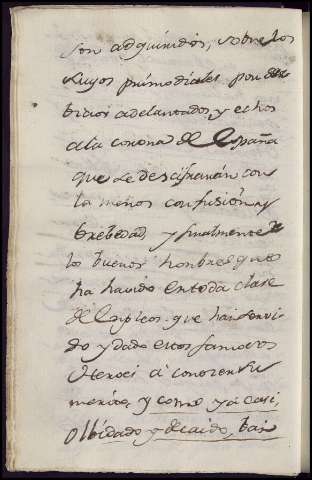 son adquiridos, sobre los
suyos primodiales por
adelantados, y echos
a la corona de España
que se descifraran con
la menos confusion, y
brebedad, y finalmente
lo buenos hombres que
ha havido en toda clase
de Empleos que han servi
do y dado estos famosos
Heroes a conocer su
merito, y como ya casi,
olbidado y decaido,